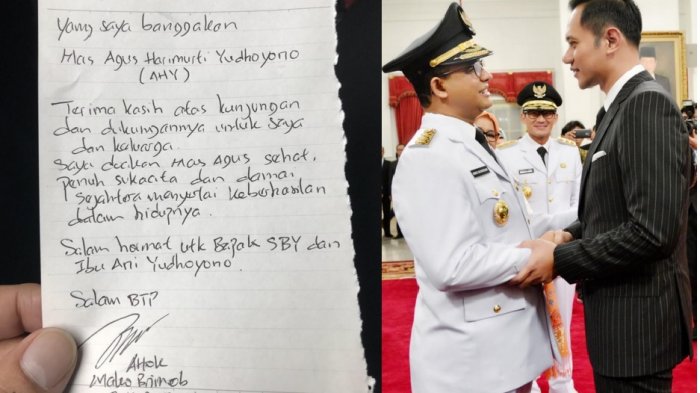 Yang saya banggakan
Mas Agus Harimurti Yudhoyono
(AHY)
Terima kasih atas kunjungan
dan dukungannya untuk saya
dan keluarga.
Saya doakan Mas Agus sehat,
penuh sukacita dan damai
sejahtera menyertai keberhasilan
dalam hidupnya.
Salam hormat utk Bapak SBY dan
Ibu Ani Yudhoyono.
Salam BTP
AHOK
Mako Brimob